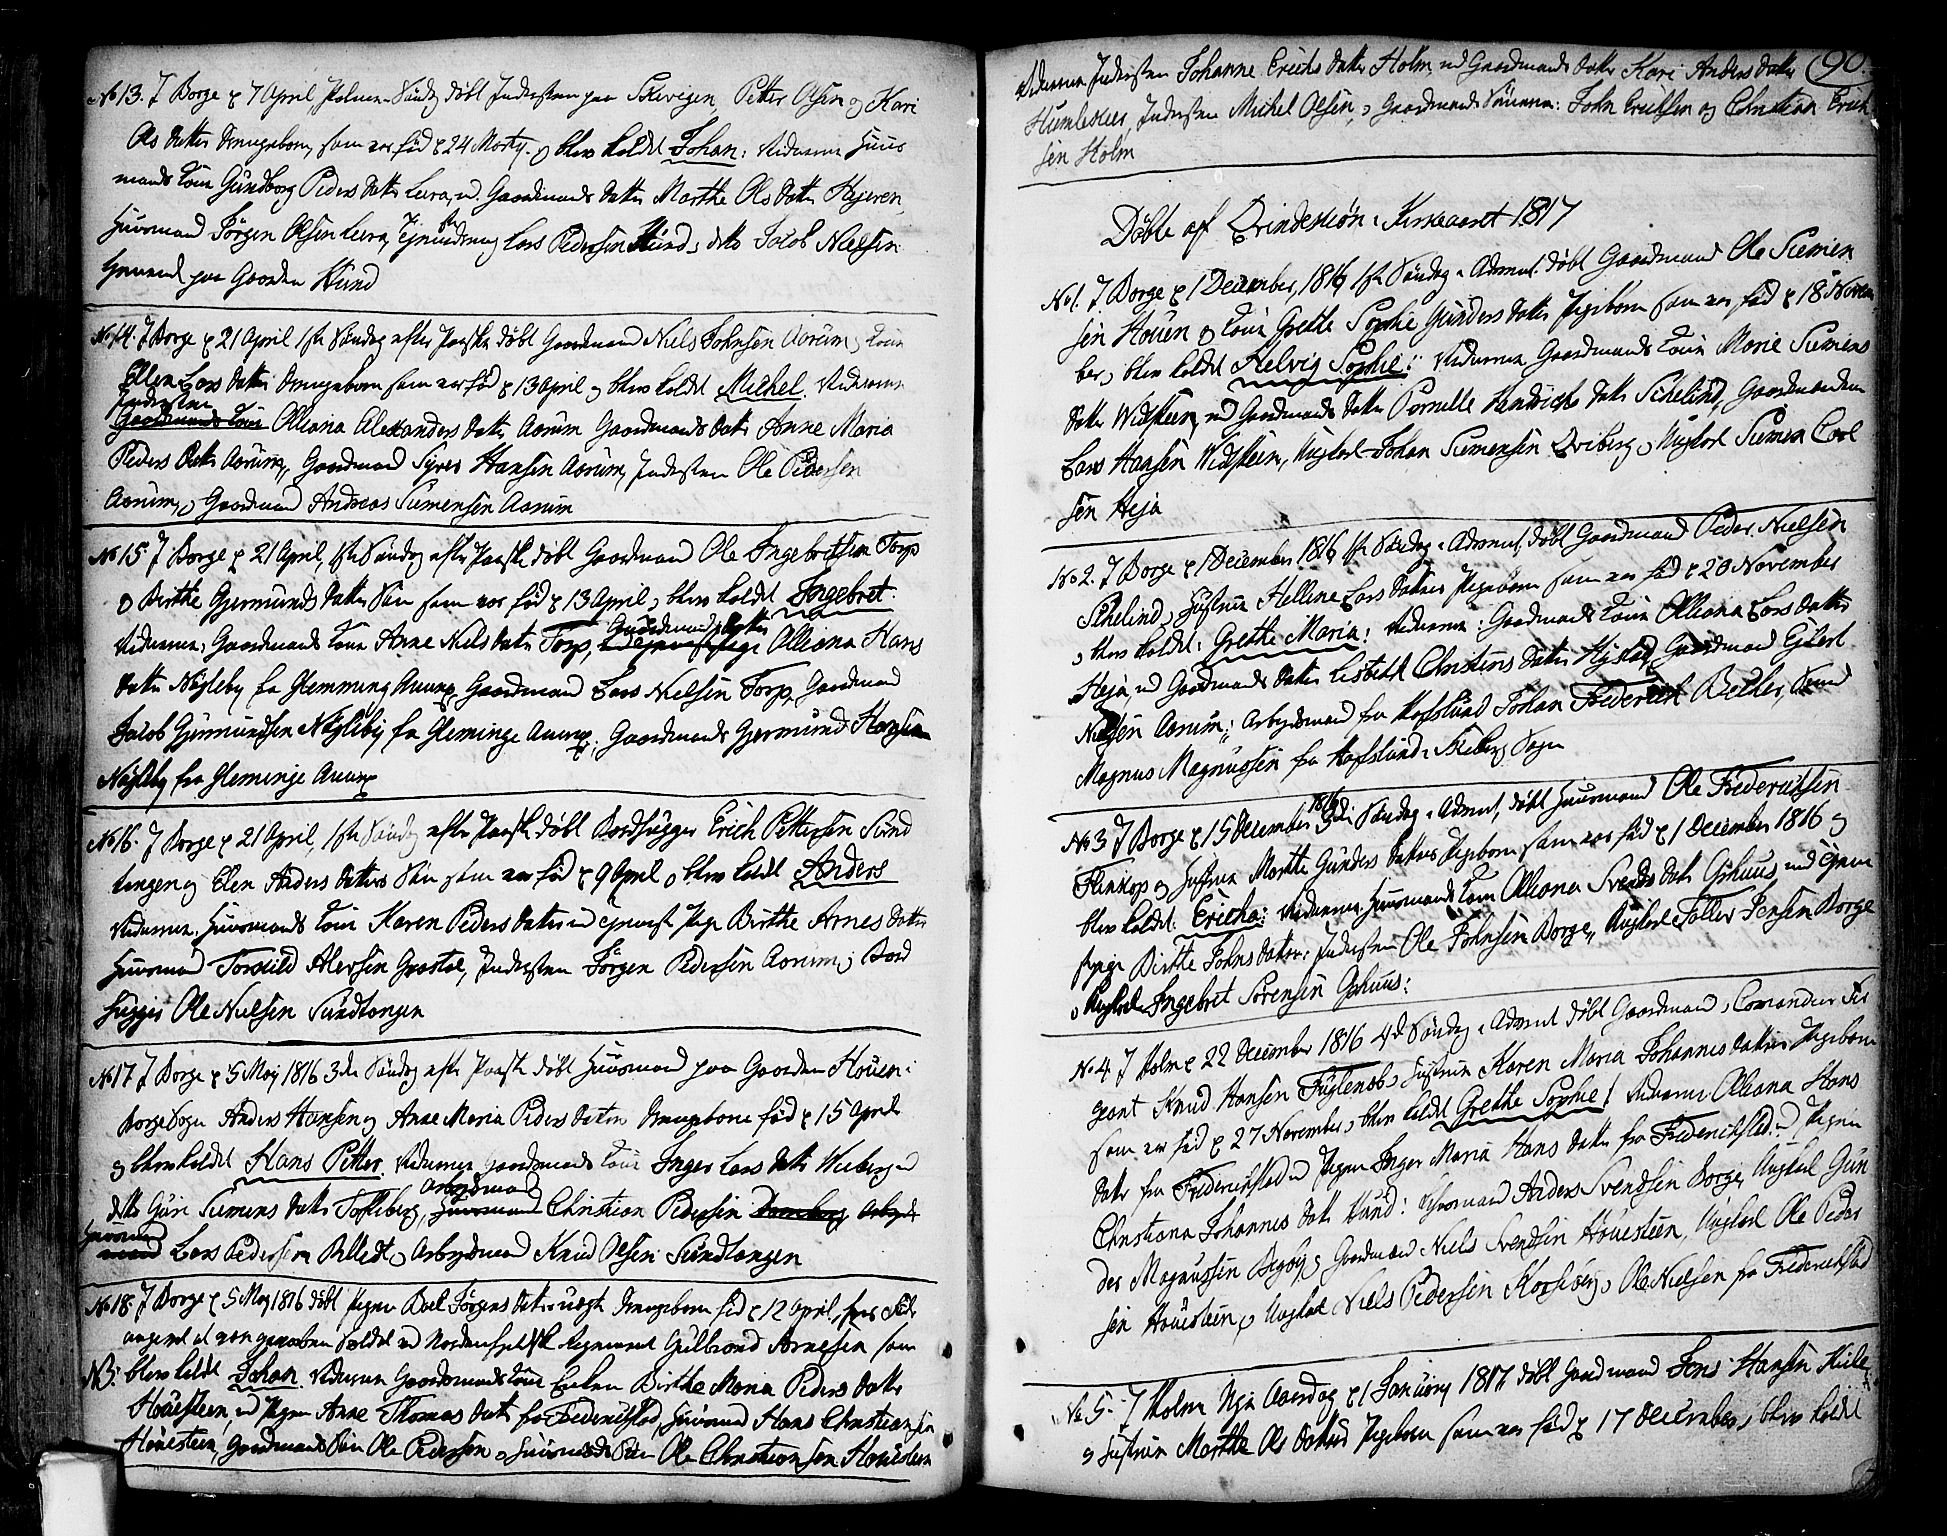 No 13. I Borge d 7 April Palme Søndag døbt Indersten paa Skivigen Petter Olsen og Kari
Ols datter drengebarn, som var fød d 24 Marty. og blev kaldet Johan: Vidnerne Huus
mands kone Gundborg Peders datter Leera, ed. Gaardmands datter Marthe Ols datter Hejeren
Huusmand Jørgen Olsen Leera, Lars Pedersen Hund, ditto Jacob Nielsen
paa Gaarden Hund
No 14. I Borge d 21 April 1ste Søndag efter Paaske døbt Gaardmand Niels Johnsen Aarum, kone
Ellen Lars datter drengebarn som var fød d 13 April og blev kaldet Michel. Vidnerne
Indersten
Gaardmands kone Olliana Alexanders datter Aarum Gaardmands datter Anne Maria
Peders datter Aarum, Gaardmand Syver Hansen Aarum, Indersten Ole Pedersen
Aarum, og Gaardmand Andreas Simensen Aarum
No 15 I Borge d 21 April, 1ste Søndag efter Paaske døbt Gaardmand Ole Ingebrethsen Torp
og Birthe Gjermunds datter Søn som var fød d 13 April og blev kaldet Ingebret.
Gaardmands datter
Vidnerne: Gaardmands kone Anne Niels datter Torp, Pige Olliana Hans
datter Nøgleby fra Glemminge Annex, Gaardmand Lars Nielsen Torp, Gaardmand
Jacob Gjermundsen Nøgleby fra Gleminge Annex, Gaardmands Gjermund Hansen
Nøgleby fra Gleminge Annex
No 16. I Borge d 21 April, 1ste Søndag efter Paaske døbt Bordhugger Erich Pettersen Sund
tangen og Elen Anders datters Søn som var fød d 9 April og blev kaldet Anders
Vidnerne, Huusmands kone Karen Peders datter ed Pige Birthe Arnes datter
Huusmand Torkild Alersen Graatoe, Indersten Jørgen Pedersen Aarum, og Bord
hugger Ole Nielsen Sundtangen
No 17 I Borge d 5 Maj 1816 3die Søndag efter Paaske døbt Huusmand paa Gaarden Houen i
Borge Sogn Anders Hansen og Anne Maria Peders datters drengebarn fød d 15 April
og blev kaldet Hans Petter. Vidnerne Gaardmands kone Inger Lars datter Wiiberg ed
Arbejdsmand
ditto Guri Siemens datter Tofteberg, Huusmand Christian Pedersen Arbejds
Huusmand
mand Lars Pedersen Rilledt, Arbejdsmand Knud Olsen Sundtangen
No 18. I Borge d 5 Maj 1816 døbt Pigen Boel Jørgens datters uægte drengebarn fød d 12 April, Fader
angivet at være Soldat ved Nordenfjeldske Regiment Gulbrand Arnesen som
NB: blev kaldet Johan. Vidnerne Gaardmands kone Enken Birthe Maria Peders datter
Houesteen, ed Pigen Anne Thomas datter fra Frederichstad, Huusmand Hans Christiansen
Houesteen, Gaardmands Søn Ole Pedersen og Huusmands Søn Ole Christiansen Houesteen
90.
Vidnerne Indersten Johanne Erichs datter Holm, ed Gaardmands datter Kari Anders datter
Humlekier, Indersten Michel Olsen, og Gaardmands Sønnerne: John Erichsen og Christian Erich
sen Holm
Døbte af Qvindekiøn i Kirkeaaret 1817
No 1. I Borge d 1 December, 1816 1ste Søndag i Advent. døbt Gaardmand Ole Siemen
sen Houen og kone Grethe Sophie Gunders datter Pigebarn som var fød d 18 Novem
ber, og blev kaldet Helvig Sophie: Vidnerne, Gaardmands kone Marie Siemens
datter Widsteen, ed Gaardmands datter Pernille Hendrichs datter Schelind, Gaardmanden
Lars Hansen Widsteen, Ungkarl Johan Siemensen Qviberg, og Ungkarl Siemen Carl
sen Heja
No 2. I Borge d 1 December 1816 1ste Søndag i Advent, døbt Gaardmand Peder Nielsen
Schelind, og Hustrue Helline Lars datters Pigebarn som var fød d 20 November
og blev kaldet: Grethe Maria: Vidnerne: Gaardmands kone Olliana Lars datter
Heja, ed Gaardmands datter Lisbeth Christens datter Hystad, Gaardmand Ejlert
Nielsen Aarum, Arbejdsmand fra Hafslund Johan Frederich Becker, Svend
Magnus Magnussen fra Hafslund i Skiberg Sogn
1816
No 3 I Borge d 15 December 3die Søndag i Advent, døbt Huusmand Ole Frederichsen
Flinkop og Hustrue Marthe Gunders datters Pigebarn som var fød d 1 December 1816 og
blev kaldet. Ericha: Vidnerne, Huusmands kone Olliana Svends datter Gshuus ed
Pige Birthe Johns datter, Indersten Ole Johnsen Borge, Ungkarl Toller Jensen Borge
og Ungkarl Ingebret Sørensen Gshuus:
No 4 I Holm d 22 December 1816 4de Søndag i Advent døbt Gaardmand, Comandeer Ser
geant Knud Hansen Fuglenæb, Hustrue Karen Maria Johannes datters Pigebarn
som var fød d 27 November, og blev kaldet Grethe Sophie! Vidnerne Olliana Hans
datter fra Frederichstad ed Pigen Inger Maria Hans datter fra Frederichstad, ed Pigen
Christiana Johannes datter Hund: Huusmand Anders Svendsen Borge, Ungkarl Gun
der Magnussen Begby, Gaardmand Niels Svendsen Houesteen, Ungkarl Ole Peder
sen Houesteen, Ungkarl Niels Pedersen Korseberg, Ole Nielsen fra Frederichstad
No 5. I Holm Nye Aarsdag d 1 Januarj 1817, døbt Gaardmand Jens Hansen Kiile
og Hustrue Marthe Ols datters Pigebarn som var fød d 17 December, og blev kaldet